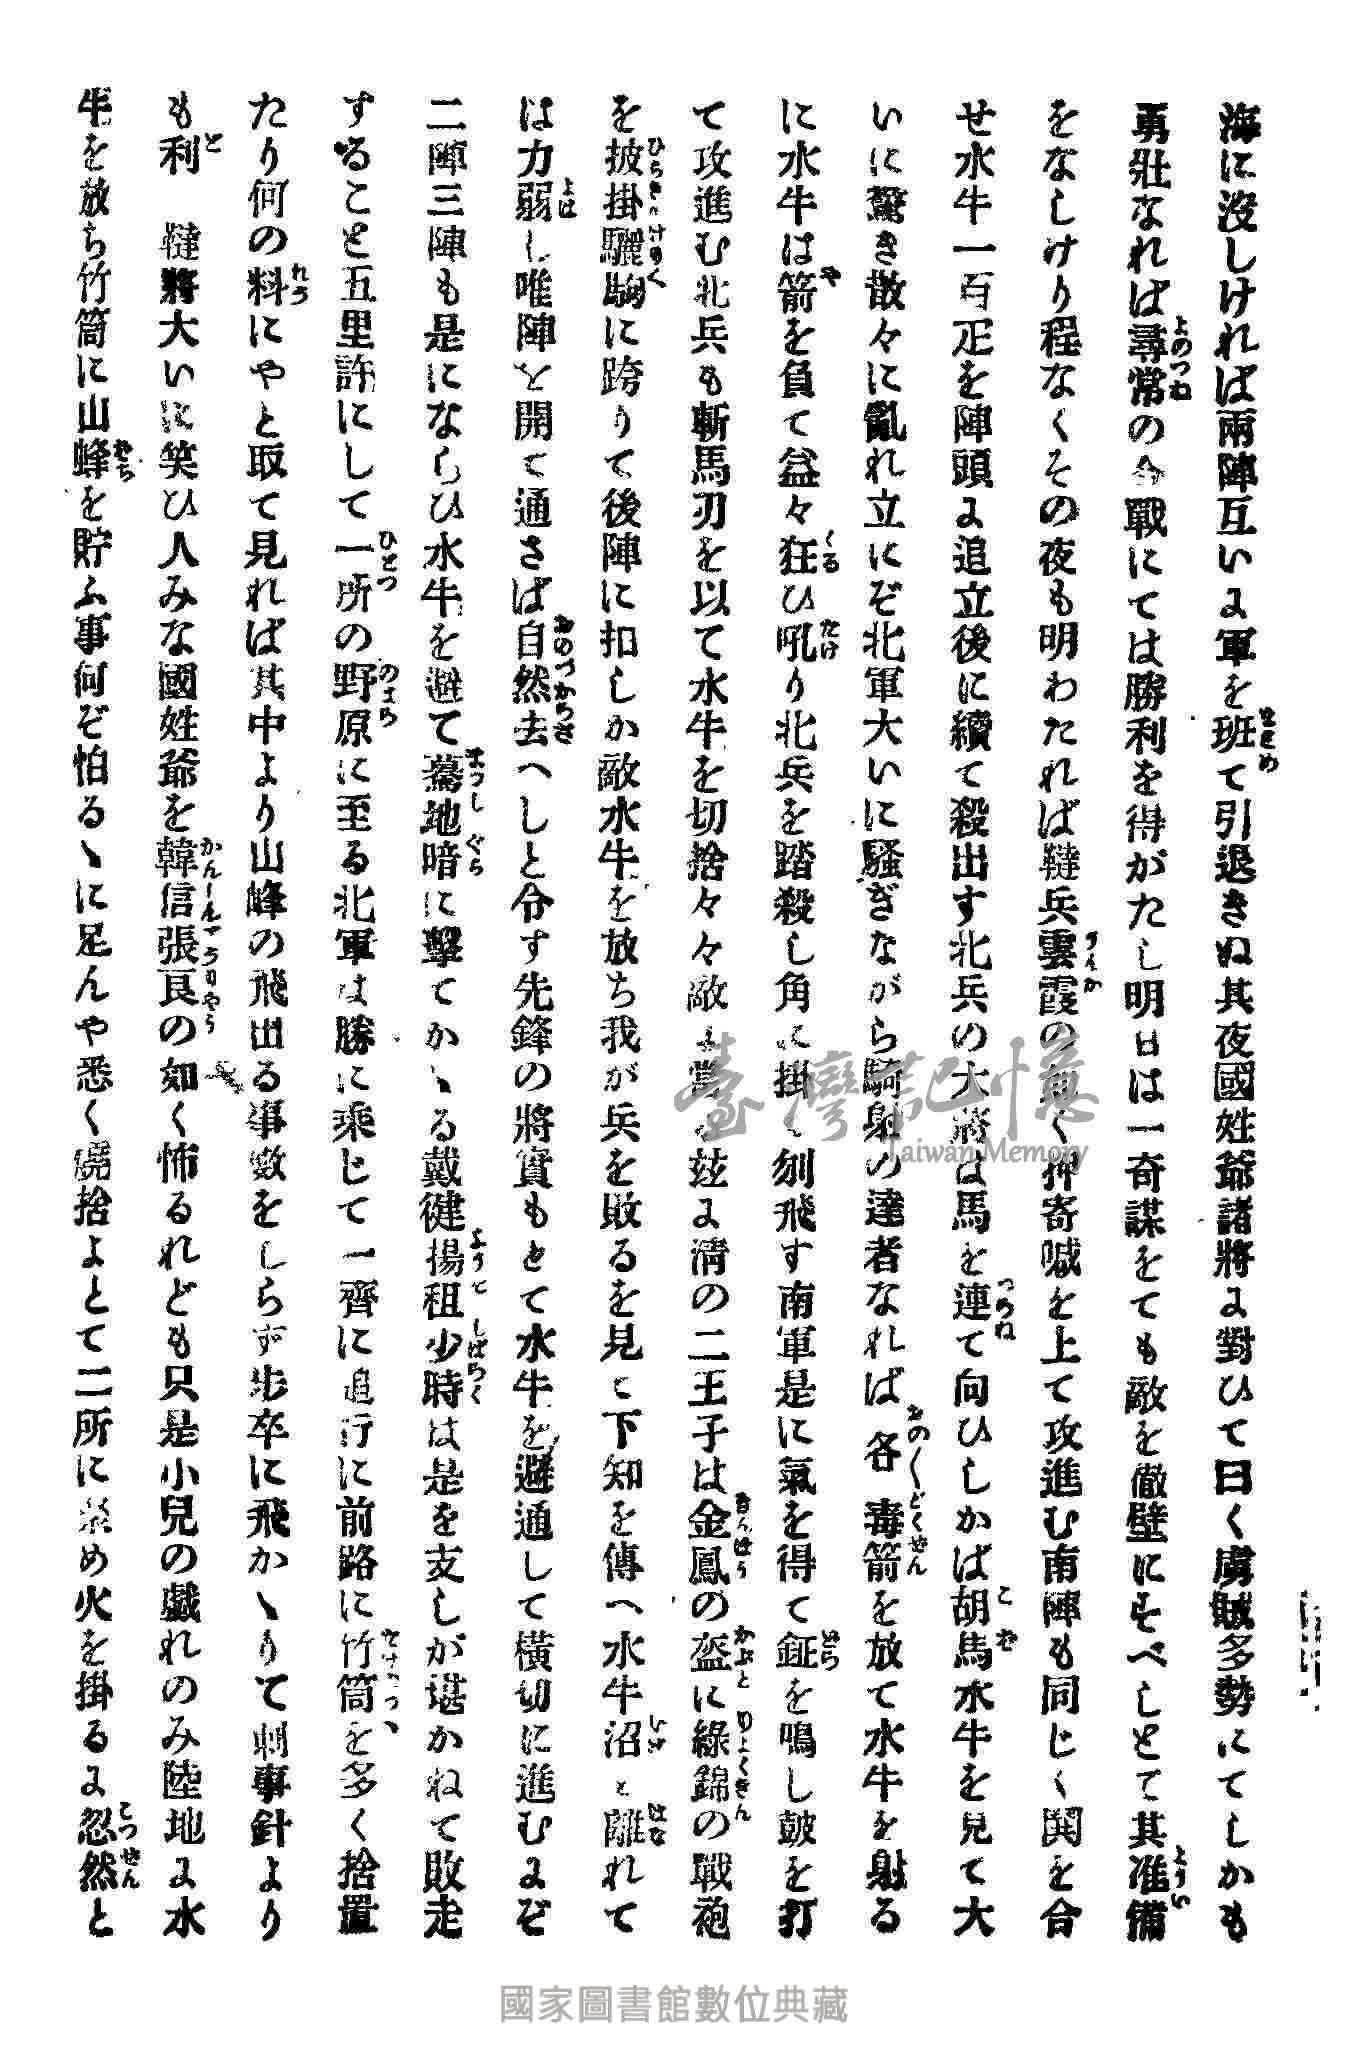 海に沒しければ兩陣互いに軍を班て引退きぬ其夜國姓爺諸將に對ひて曰く虜賊多勢にてしかも
勇壯なれば尋常の合戰にては勝利を得がたし明日は一奇謀をても敵を徹壁にすべしとて其准備
をなしけり程なくその夜も明わたれば韃兵雲霞の如く押寄喊を上て攻進む南陣も同じく鬨を合
せ水牛一百疋を陣頭に追立後に續て殺出す北兵の大將は馬を連て向ひしかば胡馬水牛を見て大
いに驚き散々に亂れ立にぞ北軍大いに騷ぎながら騎射の達者なれば各毒箭を放て水牛を射る
に水牛は箭を負て益々狂ひ吼り北兵を踏殺し角に掛て刎飛す南軍是に氣を得て鉦を鳴し皷を打
て攻進む北兵も斬馬刃を以て水牛を切捨々々敵に當る玆に淸の二王子は金鳳の盔に綠錦の戰袍
を披掛驪駒に跨りて後陣に扣しか敵水牛を放ち我が兵を敗るを見て下知を傳へ水牛沼と離れて
は力弱し唯陣を開て通さば自然去へしと令す先鋒の將實もとて水牛を避通して橫切に進むにぞ
二陣三陣も是にならひ水牛を避て驀地暗に擊てかゝる戴徤揚租少時は是を支しが堪かねて敗走
すること五里許にして一所の野原に至る北軍は勝に乘じて一齊に追行に前路に竹筒を多く捨置
たり何の料にやと取て見れば其中より山峰の飛出る事數をしらず步卒に飛かゝりて刺事針より
も利 韃將大いに笑ひ人みな國姓爺を韓信張良の如く怖るれども只是小兒の戲れのみ陸地に水
牛を放ち竹筒に山蜂を貯ふ事何ぞ怕るゝに足んや悉く燒捨よとて二所に集め火を掛るに忽然と
臺灣記憶
Taiwan Memory
國家圖書館數位典藏